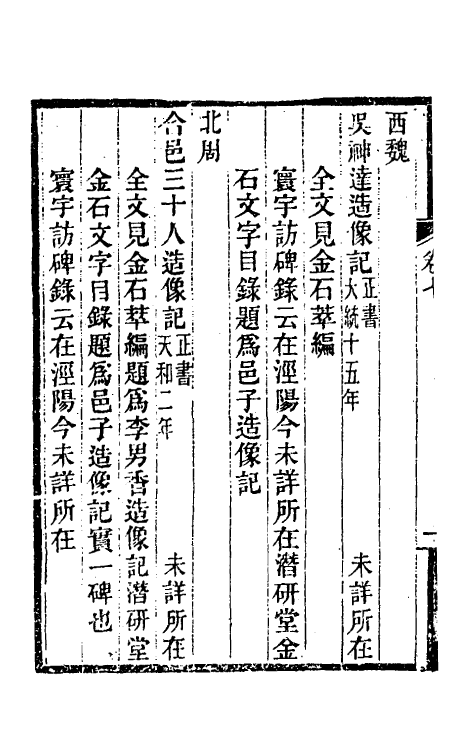 西魏
吳神達造像記正書大統十五年　未詳所在
全文見金石萃編
寰宇訪碑錄云在涇陽今未詳所在潛研堂金
石文字目錄題爲邑子造像記
北周
合邑三十人造像記正書天和二年　未詳所在
全文見金石萃編題爲李男香造像記潛研堂
金石文字目錄題爲邑子造像記實一碑也
寰宇訪碑錄云在涇陽今未詳所在
卷七